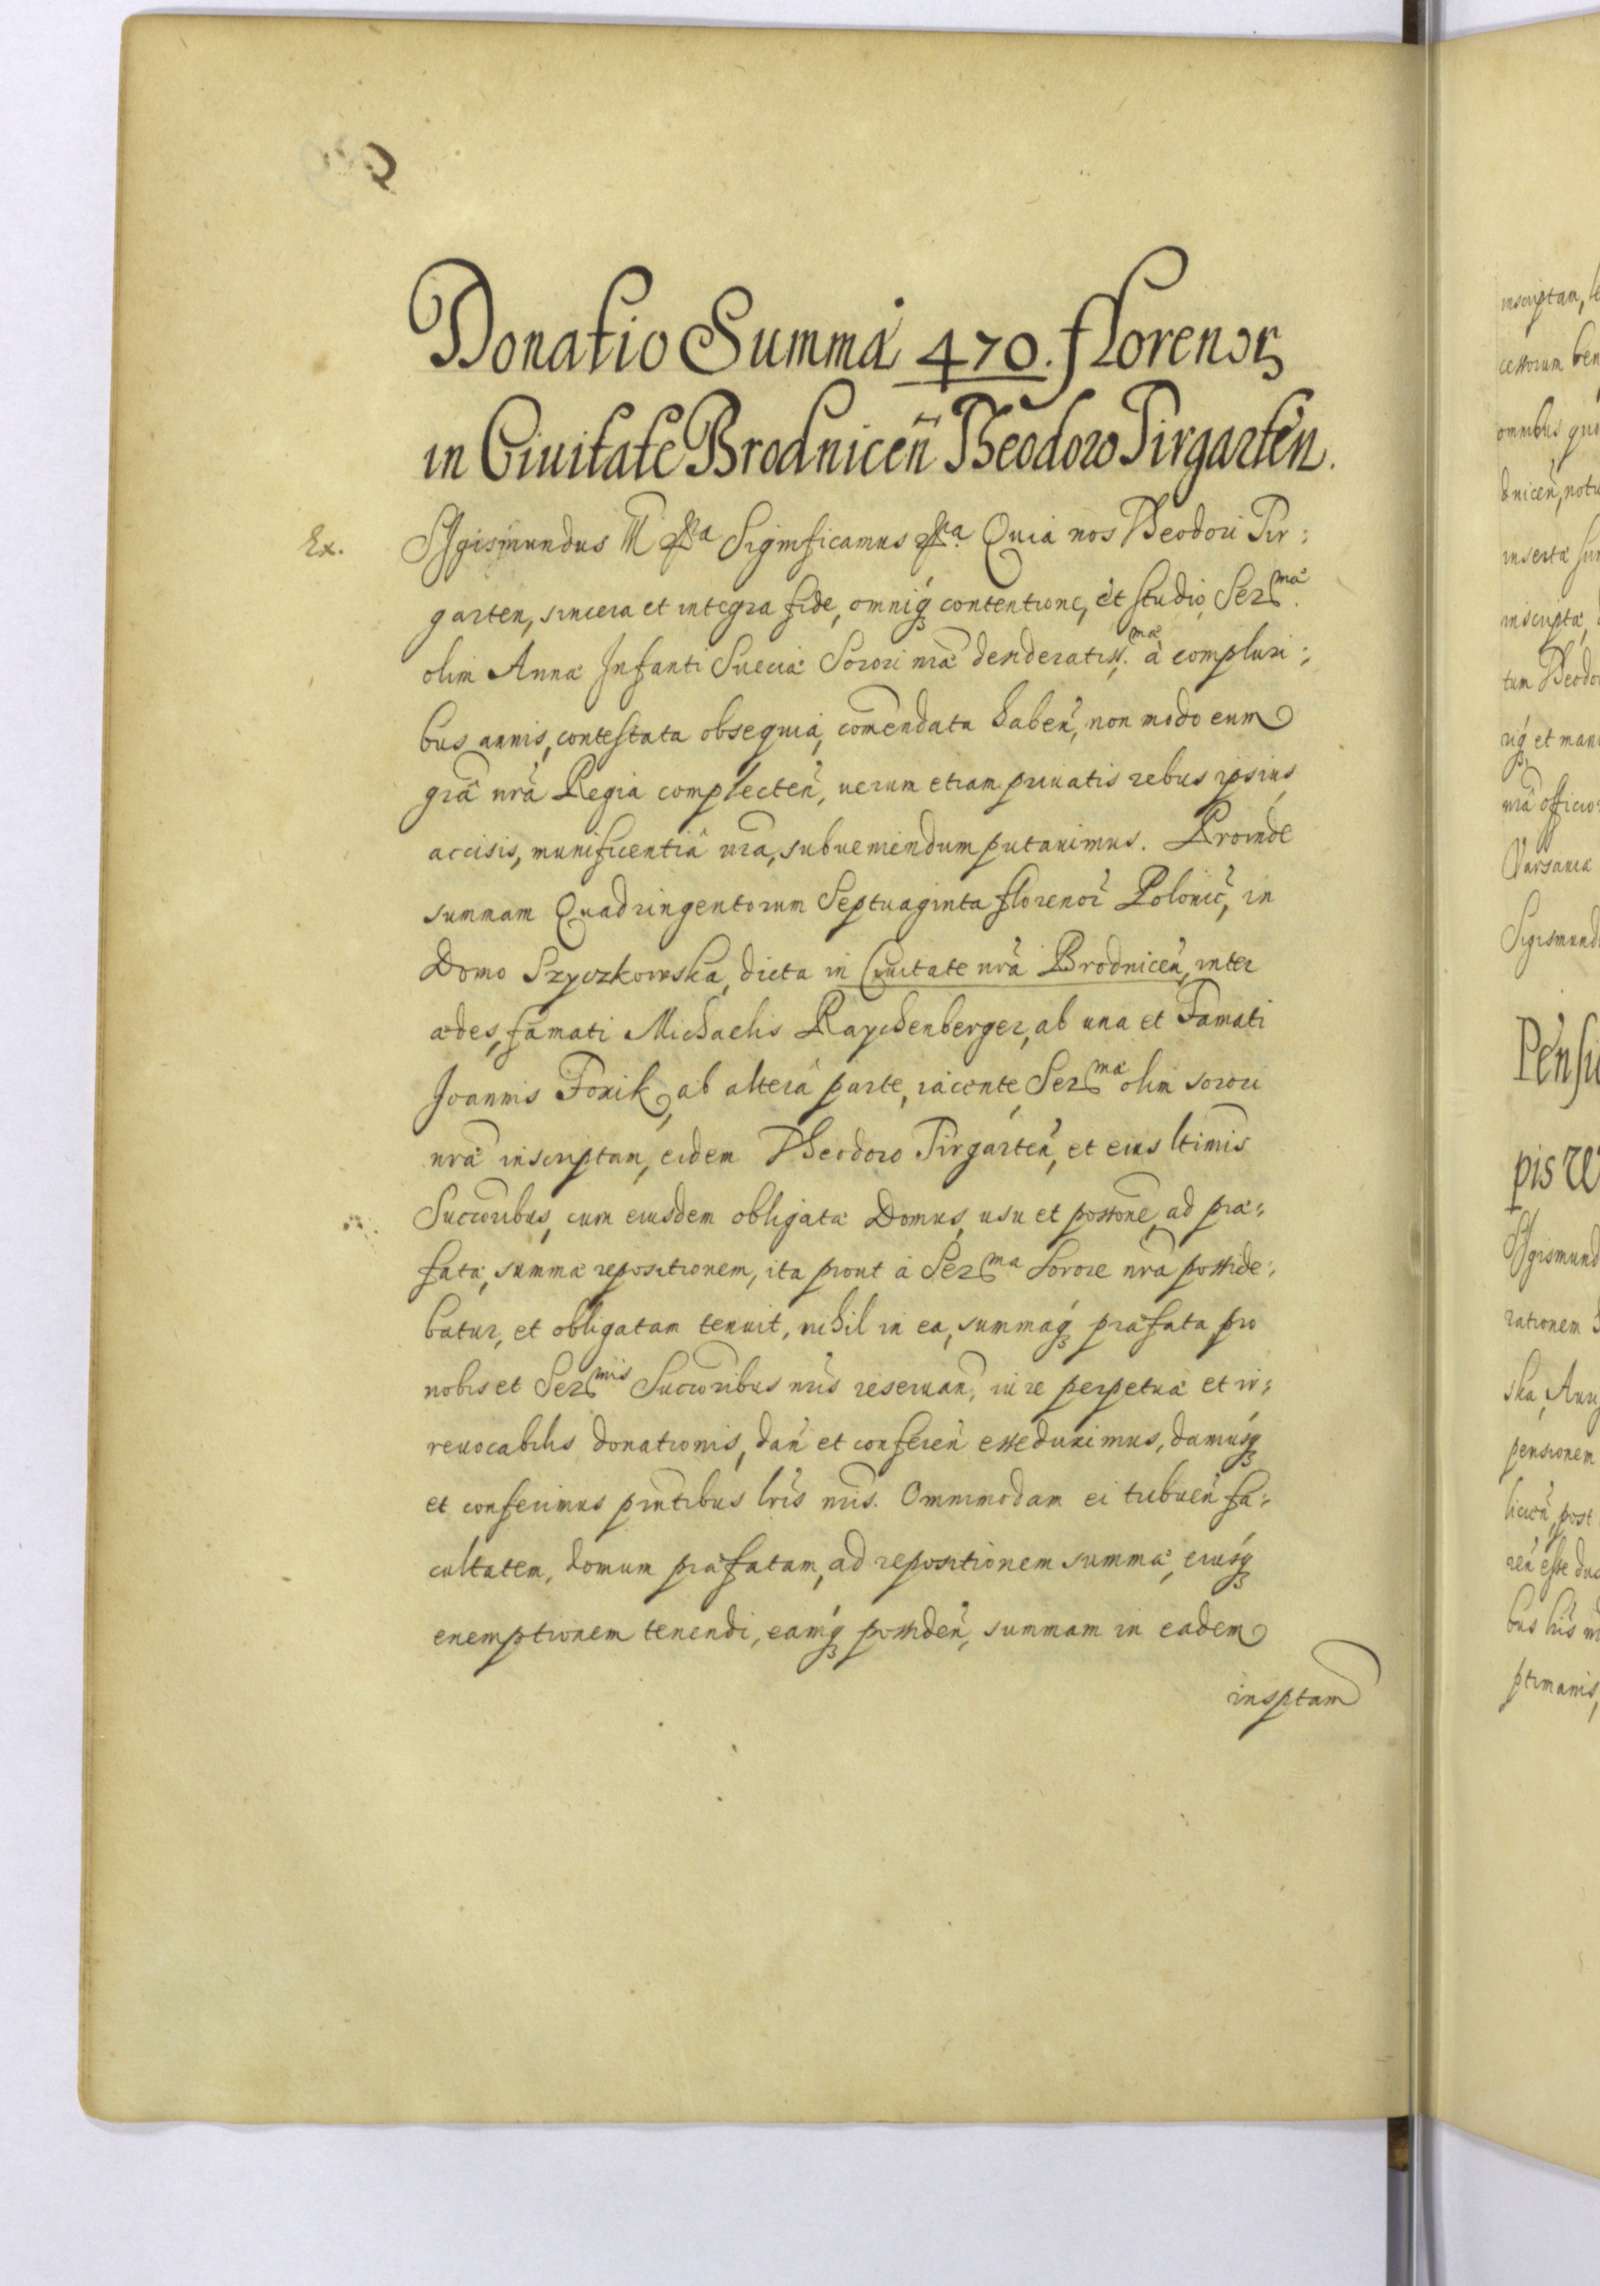 Donatio Summæ 470. florenoꝝ
in Ciuitate Brodniceñ Theodoro Tirgarten.
Ex.
Sigismundus III etca Significamus etca. Quia nos Theodori Tir:
garten, sincera et integra fide, omniq contentione, et studio, Serma.
olim Annæ Infanti Sueciæ Sorori nræ desideratiss.mæ à compluri:
bus annis, contestata obsequia, comendata habeñ, non modo eum
grâ nrâ Regia complecteñ, uerum etiam priuatis rebus ipsius
accisis, munificentiâ nra, subueniendum putauimus. Proinde
summam Quadringentorum Septuaginta florenor Polonic, in
Domo Szyczkowska, dicta in Ciuitate nrâ Brodniceñ, inter
ædes, famati Michaelis Raychenberger, ab una et Famati
Joannis Foxik, ab altera parte, iacente Sermæ olim sorori
nræ inscriptam, eidem Theodoro Tirgarteñ, et eius ltimis
Succoribus, cum eiusdem obligatæ Domus, usu et possone, ad præ:
fatæ, summæ repositionem, ita prout à Serma Sorore nra posside:
batur, et obligatam tenuit, nihil in ea, summaq præfata pro
nobis et Sermis Succoribus nris reseruan, iure perpetuæ et ir:
reuocabilis donationis, dañ et confereñ esse duximus, damusq
et conferimus pñtibus lris nris. Omnimodam ei tribueñ fa:
cultatem, domum præfatam, ad repositionem summæ, eiusq
exemptionem tenendi, eamq possideñ, summam in eadem
insptam
inscriptam,
cessorum
omnibus
dniceñ, notu
insertæ
inscriptæ,
tum Theodo
riq et man
nrâ officio
Varsauiæ
Sigismund
Pensi
pis
Sigismund
rationem
ska, Ann
pensionem
post
reñ esse du
bus lris
ptimanis,